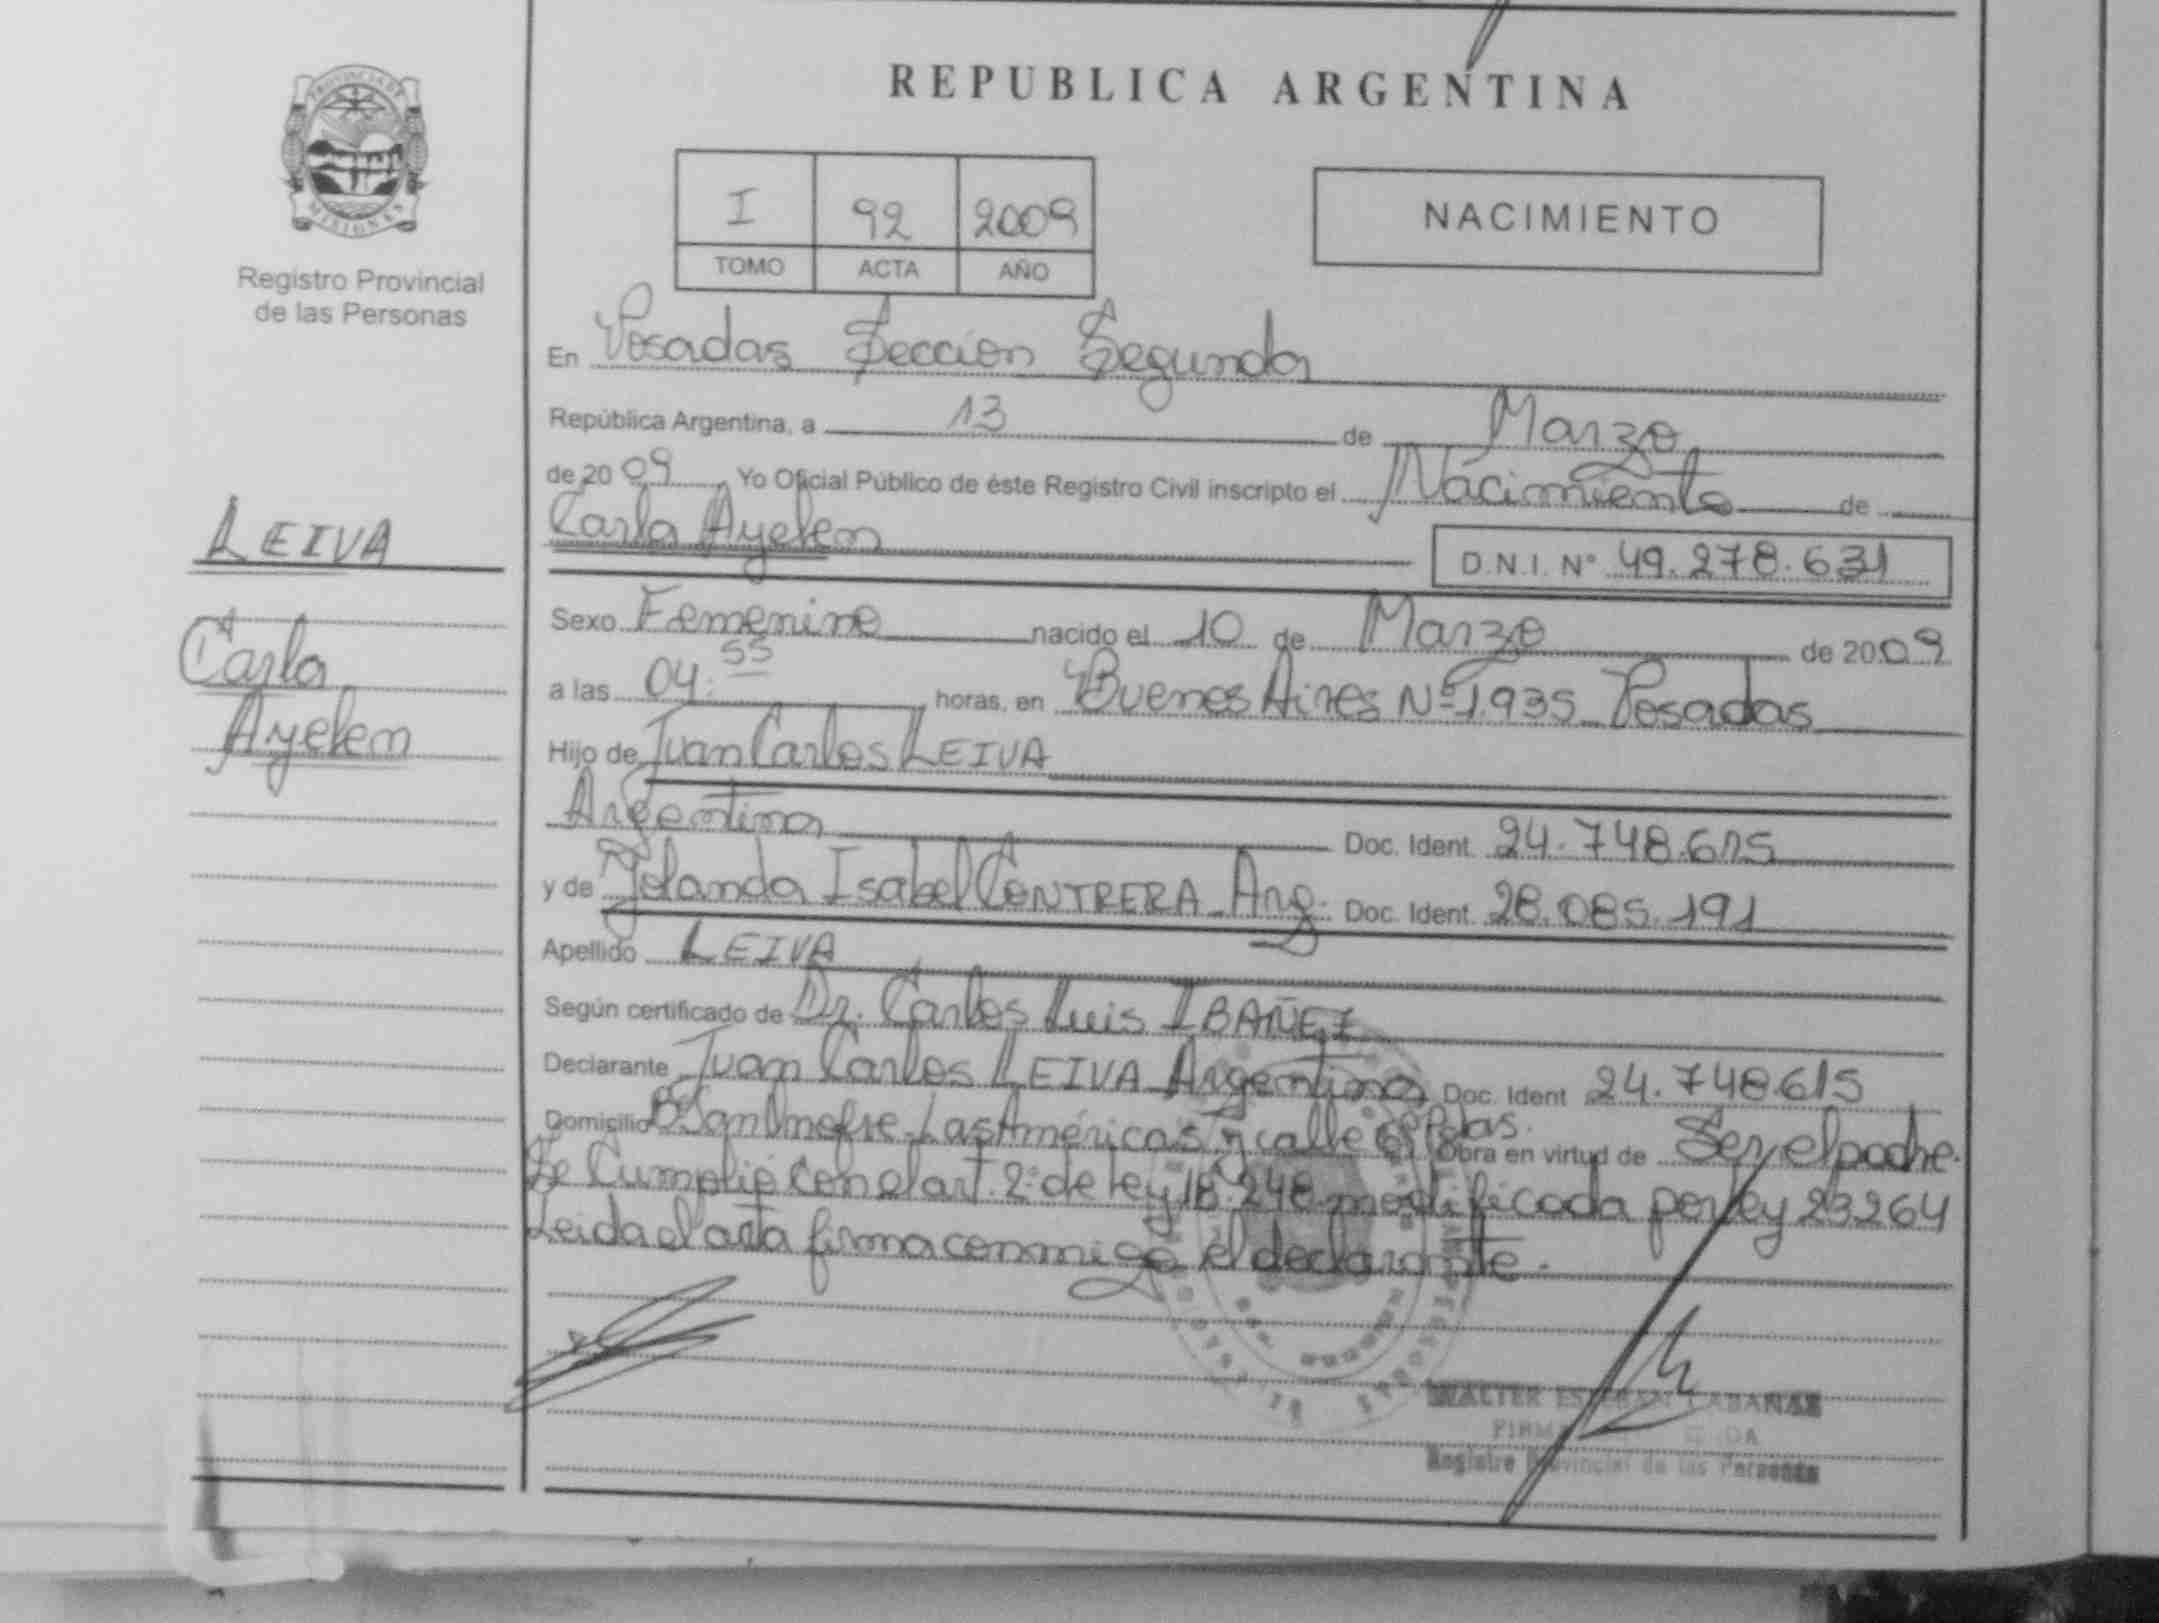 REPUBLICA ARGENTINA
PROVINCIA DE
MISIONES
Registro Provincial
de las Personas
I 92 2009
TOMO ACTA AÑO
NACIMIENTO
En Posadas Sección Segunda
República Argentina, a 13 de Marzo
de 2009 Yo Oficial Público de éste Registro Civil inscripto el Nacimiento de
LEIVA
Carla Ayelem
D.N.I. Nº 49.278.631
Carla
Ayelem
Sexo Femenino nacido el 10 de Marzo de 2009
a las 04:55 horas, en Buenos Aires Nº 1.935 Posadas
Hijo de Juan Carlos LEIVA
Argentina Doc. Ident. 24.748.615
y de Yolanda Isabel CONTRERA Arg. Doc. Ident. 28.085.191
Apellido LEIVA
Según certificado de Dr. Carlos Luis IBAÑEZ
Declarante Juan Carlos LEIVA Argentino Doc. Ident 24.748.615
Domicilio Bº San Onofre Las Américas y calle Pdas. Obra en virtud de Ser el padre.
Se Cumplió con el art. 2º de ley 18.248 modificada por ley 23264
Leida el acta firma conmigo el declarante.
WALTER ESTEBAN CABAÑAS
Registro Provincial de las Personas